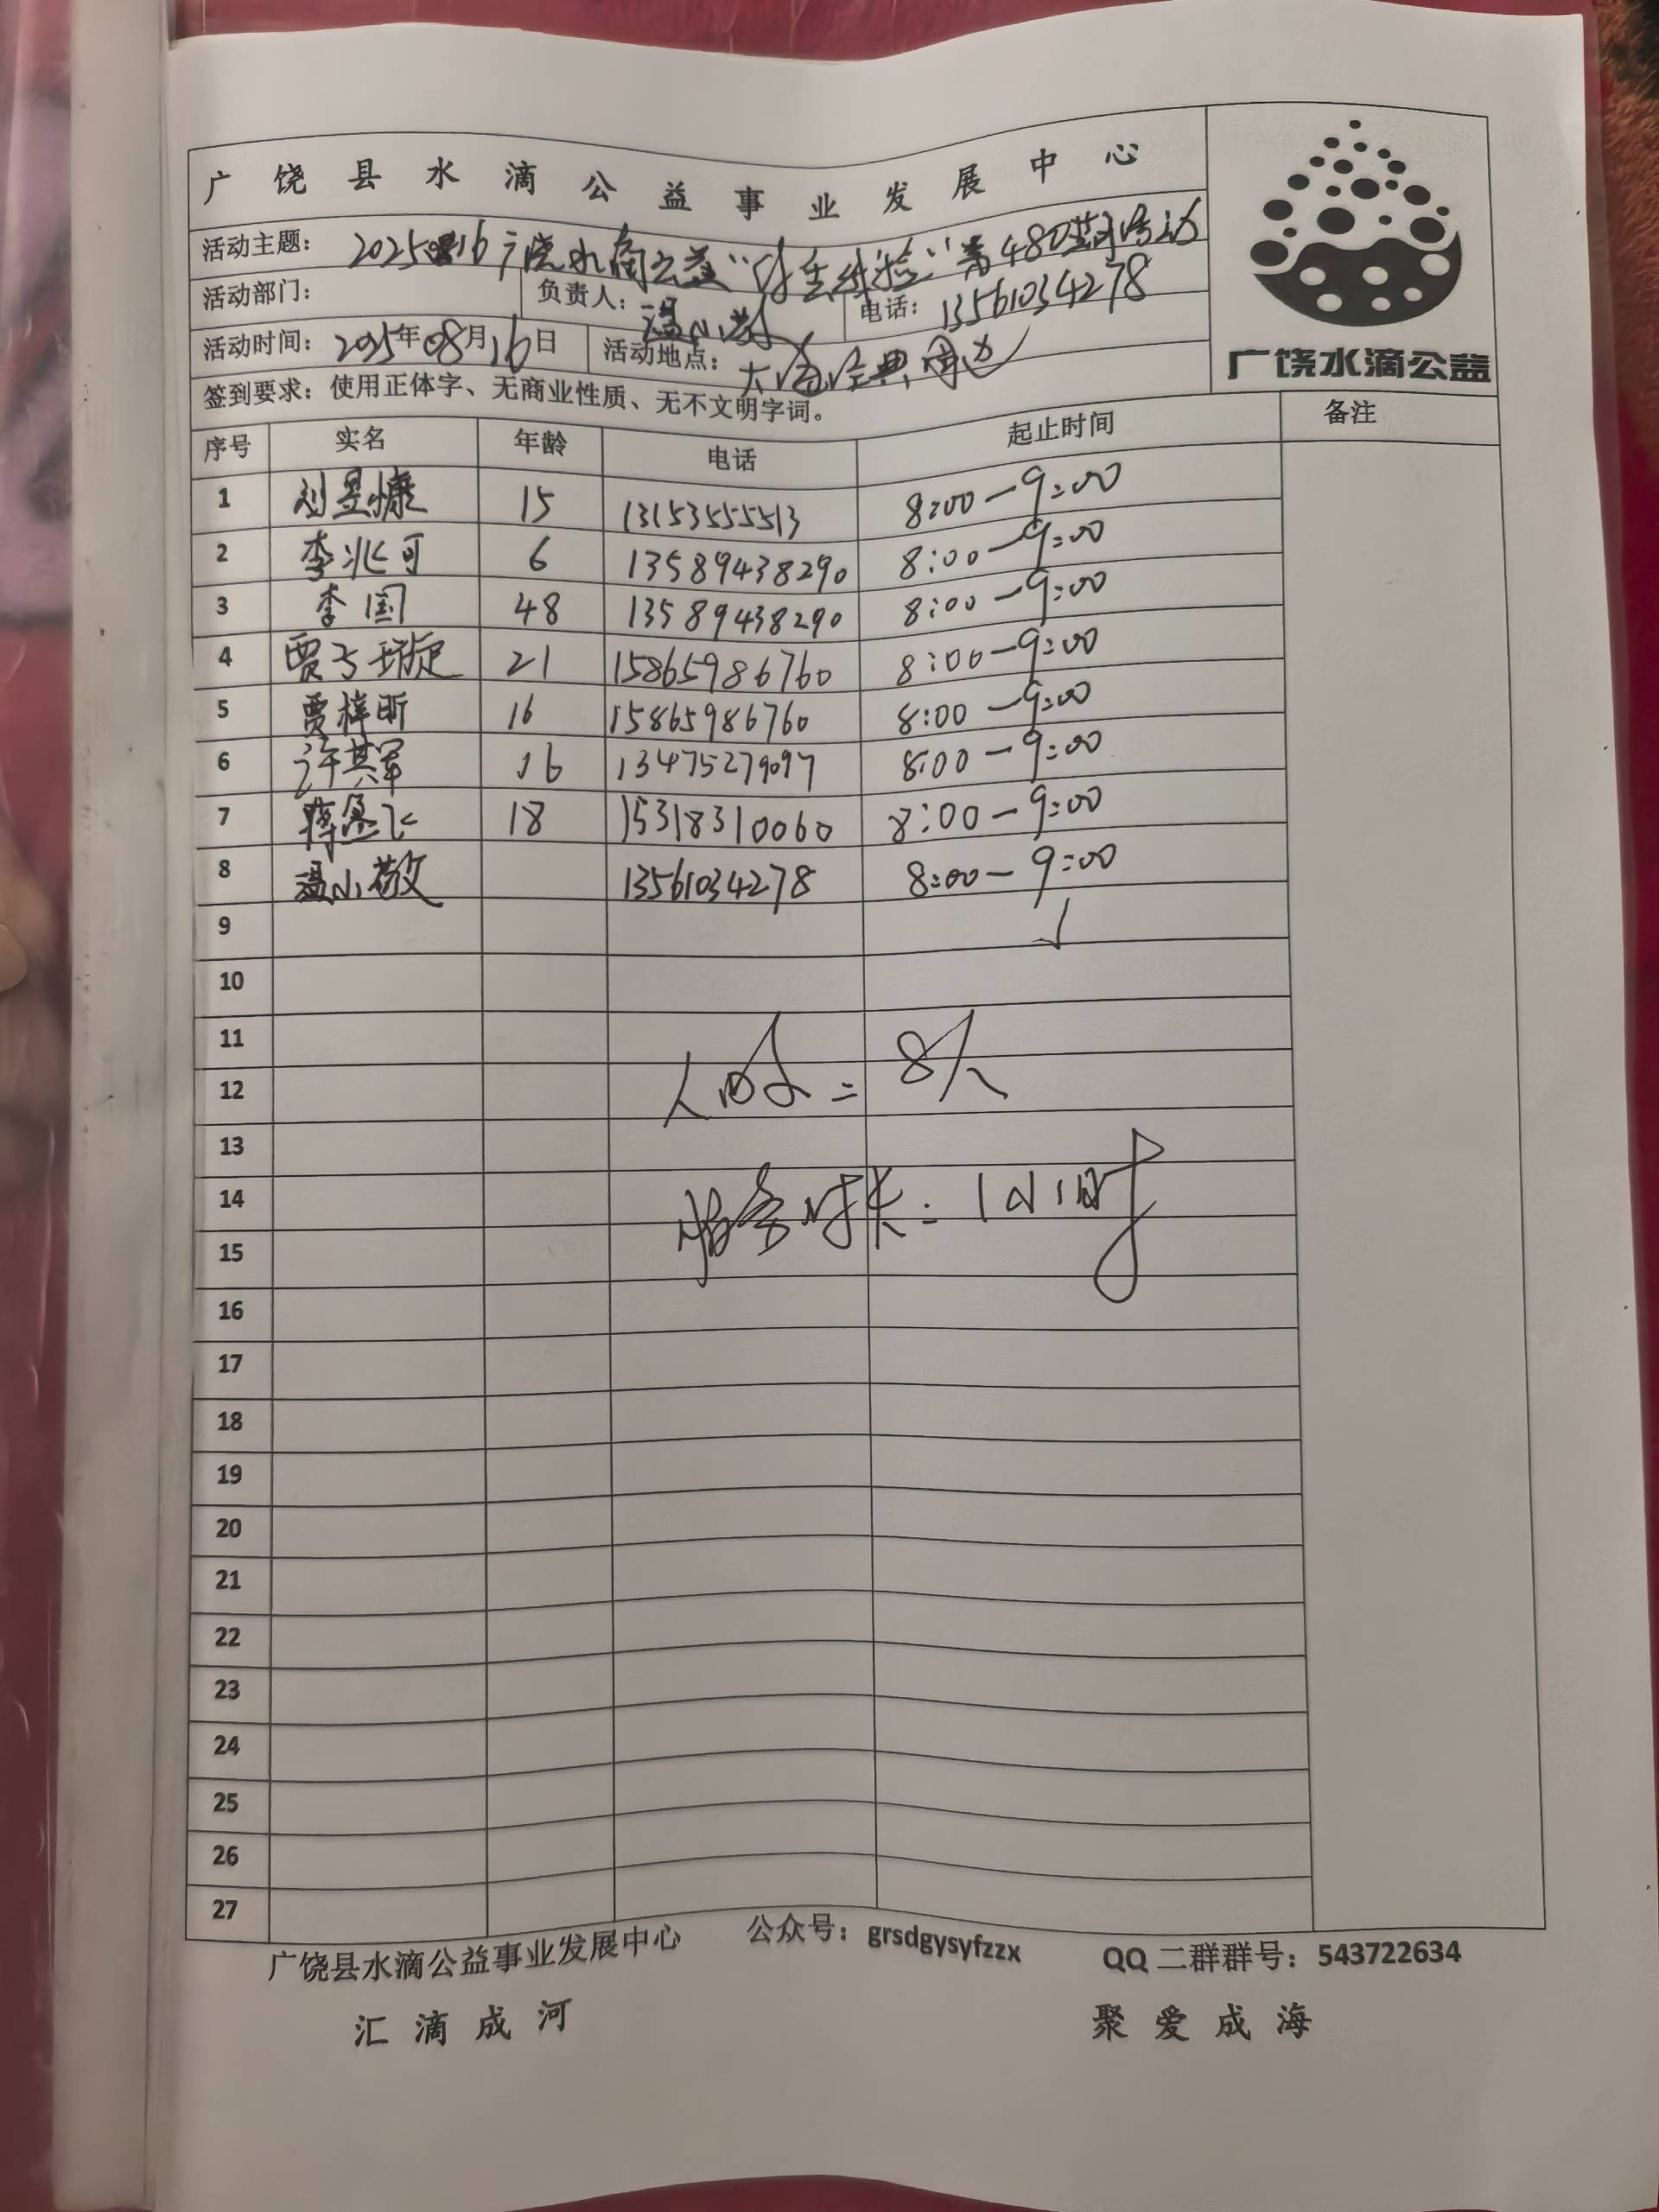 广饶县水滴公益事业发展中心
活动主题: 20250816广饶水滴公益“ 体验”第480期活动
活动部门: 负责人: 温小敬 电话: 13561034278
活动时间: 2025年08月16日 活动地点: 大海经典周边
签到要求: 使用正体字、无商业性质、无不文明字词。
广饶水滴公益
序号 实名 年龄 电话 起止时间 备注
1 刘昱慷 15 13153555513 8:00-9:00
2 李兆可 6 13589438290 8:00-9:00
3 李国 48 13589438290 8:00-9:00
4 贾子璇 21 15865986760 8:00-9:00
5 贾梓昕 16 15865986760 8:00-9:00
6 许其军 16 13475279097 8:00-9:00
7 15318310060 18 8:00-9:00
8 温小敬 13561034278 8:00-9:00
9
10
11
人次=8人
12
13
14
服务时长:1小时
15
16
17
18
19
20
21
22
23
24
25
26
27
广饶县水滴公益事业发展中心 公众号: grsdgysyfzzx QQ二群群号: 543722634
汇滴成河 聚爱成海